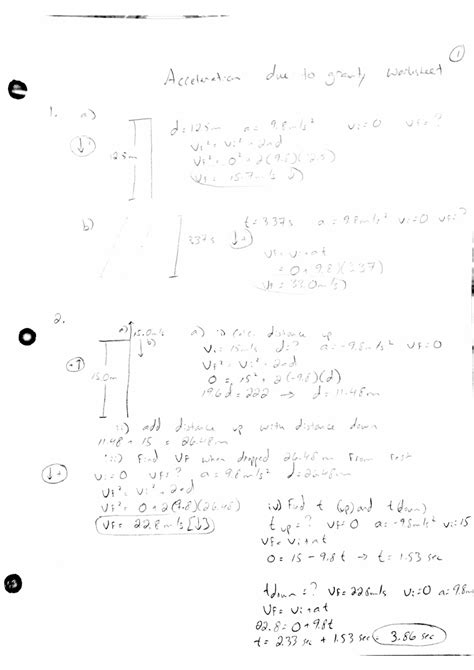 1
Acceleration due to gravity Worksheet
1. a)
12.5m
d=12.5m a=9.8m/s² Vi=0 VF=?
VF²=Vi²+2ad
VF²=0²+2(9.8)(12.5)
VF=15.7m/s ↓
b)
3.37s
t=3.37s a=9.8m/s² Vi=0 VF=?
VF=Vi+at
=0+9.8)(3.37)
VF=33.0m/s)
2.
a) 15.0m/s
b)
15.0m
a) i) Find distance up
Vi=15m/s d=? a=-9.8m/s² VF=0
VF²=Vi²+2ad
0=15²+2(-9.8)(d)
19.6d=222 → d=11.48m
ii) add distance up with distance down
11.48+15=26.48m
iii) Find VF when dropped 26.48m From rest
Vi=0 VF=? a=9.8m/s² d=26.48m
VF²=Vi²+2ad
VF²=0+2(9.8)(26.48)
VF=22.8m/s[↓]
iv) Find t (up) and t (down)
t up=? VF=0 a=-9.8m/s² Vi=15
VF=Vi+at
0=15-9.8t → t=1.53 sec
t down=? VF=22.8m/s Vi=0 a=9.8m
VF=Vi+at
22.8=0+9.8t
t=2.33 sec + 1.53 sec = 3.86 sec